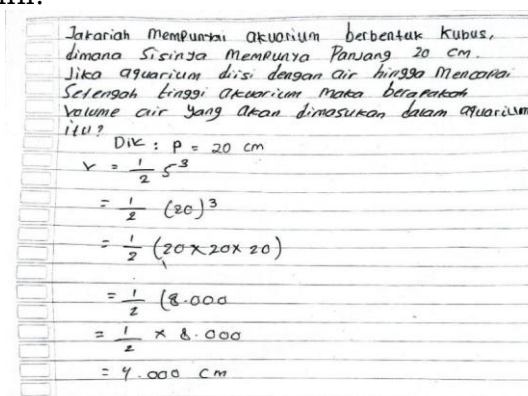 Jakariah mempunyai akuarium berbentuk kubus,
dimana sisinya mempunya panjang 20 cm.
Jika aquarium diisi dengan air hingga mencapai
setengah tinggi akuarium maka berapakah
volume air yang akan dimasukan dalam aquarium
itu?
Dik : P = 20 cm
V = 1/2 s³
= 1/2 (20)³
= 1/2 (20 x 20 x 20)
= 1/2 (8.000
= 1/2 x 8.000
= 4.000 cm